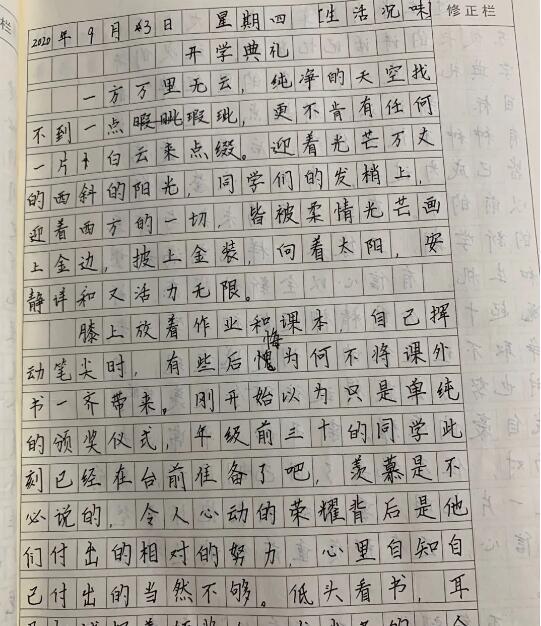 2020年9月3日 星期四 [生活况味] 修正栏
开学典礼
一方万里无云，纯净的天空找
不到一点瑕玼，更不肯有任何
一片白云来点缀。迎着光芒万丈
的西斜的阳光，同学们的发梢上，
迎着西方的一切，皆被柔情光芒画
上金边，披上金装，向着太阳，安
静详和又活力无限。
膝上放着作业和课本，自己挥
动笔尖时，有些后悔为何不将课外
书一齐带来。刚开始以为只是单纯
的颁奖仪式，年级前三十的同学此
刻已经在台前准备了吧，羡慕是不
必说的，令人心动的荣耀背后是他
们付出的相对的努力，心里自知自
己付出的当然不够。低头看书，耳